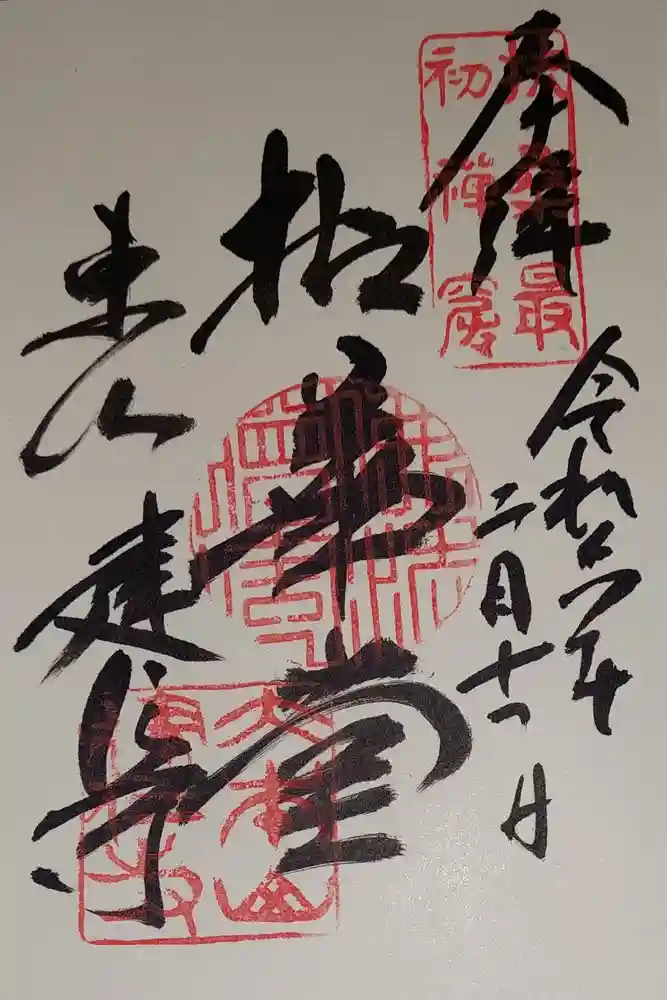 奉拝
扶桑最
初禅窟
令和六年
二月十一日
拈華堂
東山
建仁寺
大本山
建仁寺